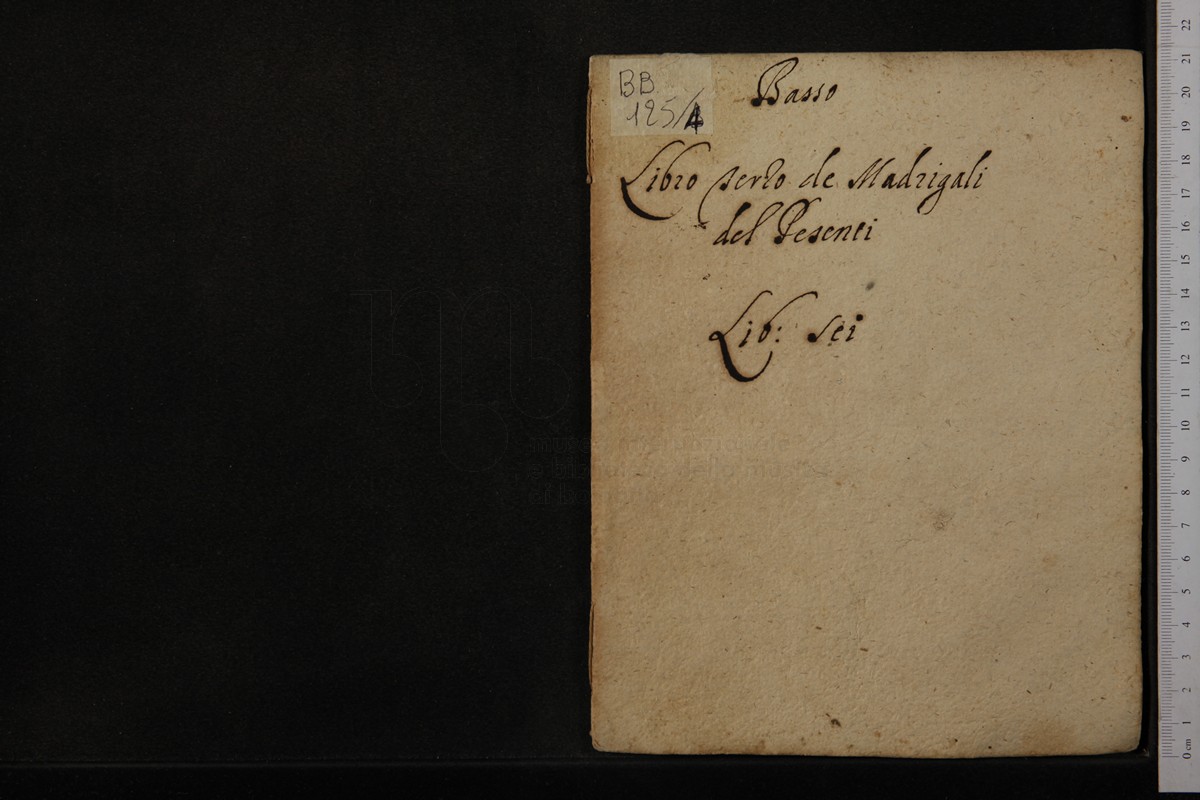 BB
125/4
Basso
Libro terzo de Madrigali
del Pesenti
Lib: sei
museo internazionale
e biblioteca della musica
di bologna
22
21
20
19
18
17
16
15
14
13
12
11
10
9
8
7
6
5
4
3
2
1
0 cm